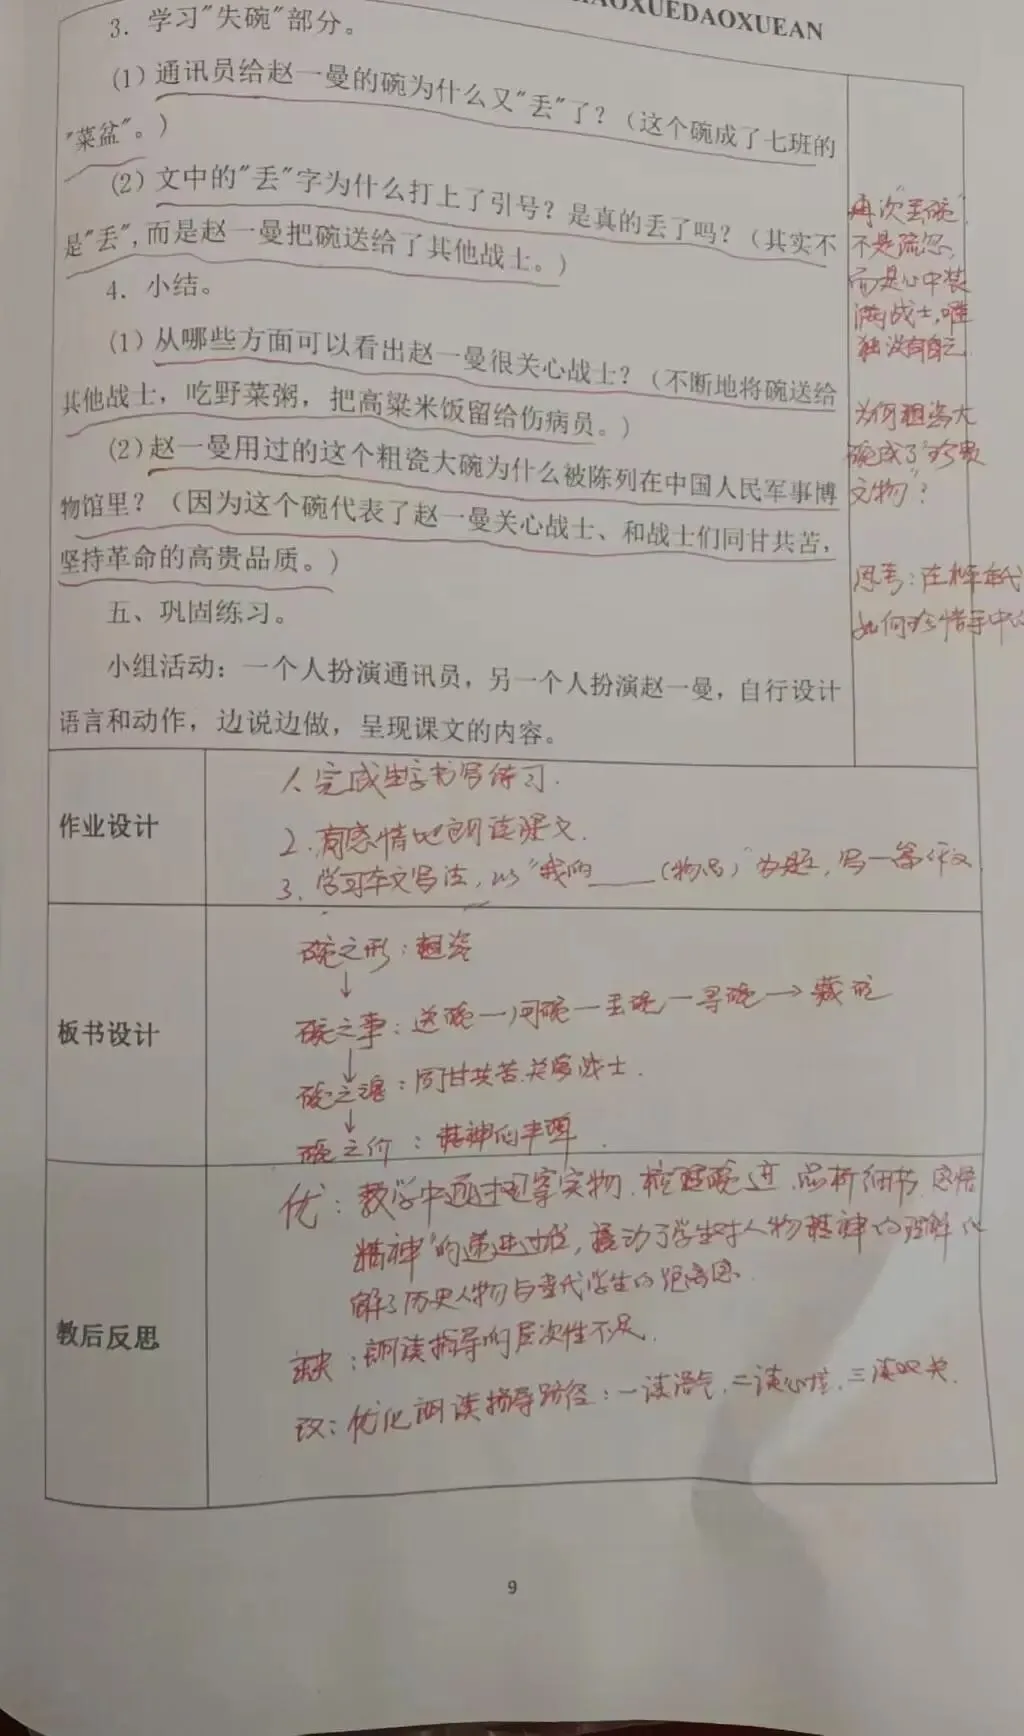 AOXUEDAOXUEAN
3. 学习"失碗"部分。
(1)通讯员给赵一曼的碗为什么又"丢"了?(这个碗成了七班的
"菜盆"。)
(2)文中的"丢"字为什么打上了引号?是真的丢了吗?(其实不
是"丢",而是赵一曼把碗送给了其他战士。)
4. 小结。
(1)从哪些方面可以看出赵一曼很关心战士?(不断地将碗送给
其他战士,吃野菜粥,把高粱米饭留给伤病员。)
(2)赵一曼用过的这个粗瓷大碗为什么被陈列在中国人民军事博
物馆里?(因为这个碗代表了赵一曼关心战士、和战士们同甘共苦,
坚持革命的高贵品质。)
五、巩固练习。
小组活动:一个人扮演通讯员,另一个人扮演赵一曼,自行设计
语言和动作,边说边做,呈现课文的内容。
再次"丢碗",
不是疏忽,
而是心中装
满战士,唯
独没有自己
为何粗瓷大
碗成了"珍贵
文物"?
思考:在和平年代
如何珍惜手中
作业设计
1. 完成生字书写练习.
2. 有感情地朗读课文.
3. 学习本文写法,以"我的____(物品)"为题,写一篇作文
板书设计
碗之形:粗瓷
↓
碗之事:送碗—问碗—丢碗—寻碗→藏碗
↓
碗之魂:同甘共苦.关爱战士.
↓
碗之价:精神的丰碑.
教后反思
优:教学中通过"观察实物.梳理碗迹.品析细节.感悟
精神"的递进过程,推动了学生对人物精神的理解化
解了历史人物与当代学生的距离感.
缺:朗读指导的层次性不足.
改:优化朗读指导路径:一读语气.二读心情.三读
9